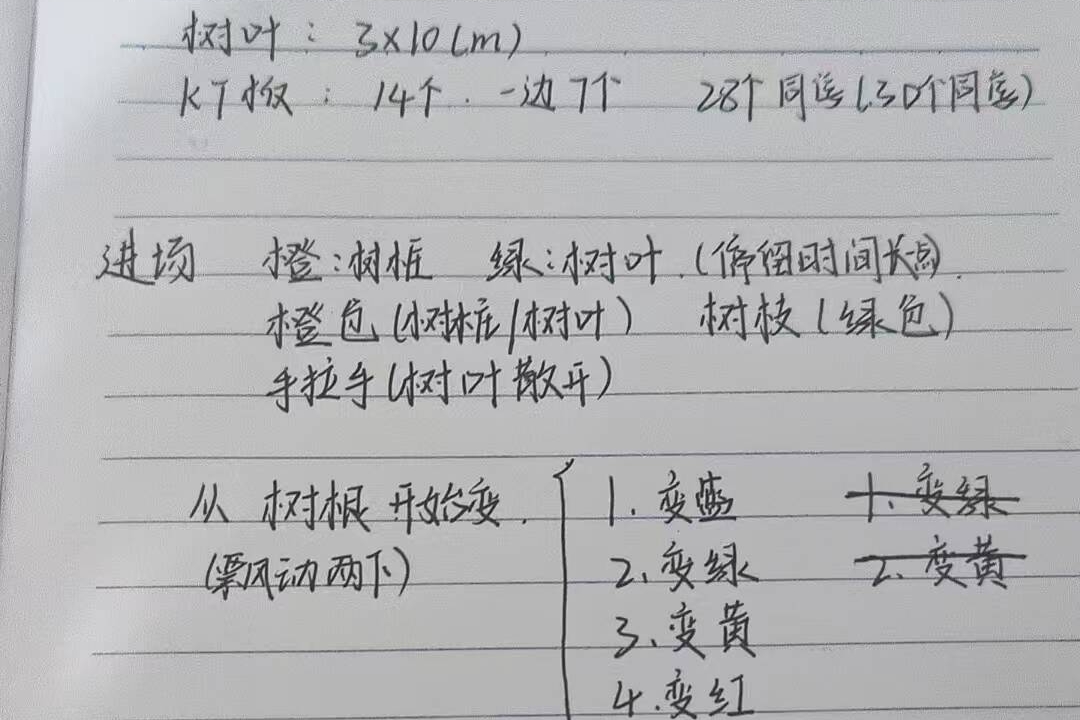 树叶：3×10(m)
KT板：14个．一边7个 28个同学(30个同学)
进场 橙：树桩 绿：树叶．(停留时间长点)．
橙包(树桩/树叶) 树枝(绿包)
手拉手(树叶散开)
从树根开始变．
(票风动两下)
1．变蓝 1．变绿
2、变绿 2．变黄
3、变黄
4．变红